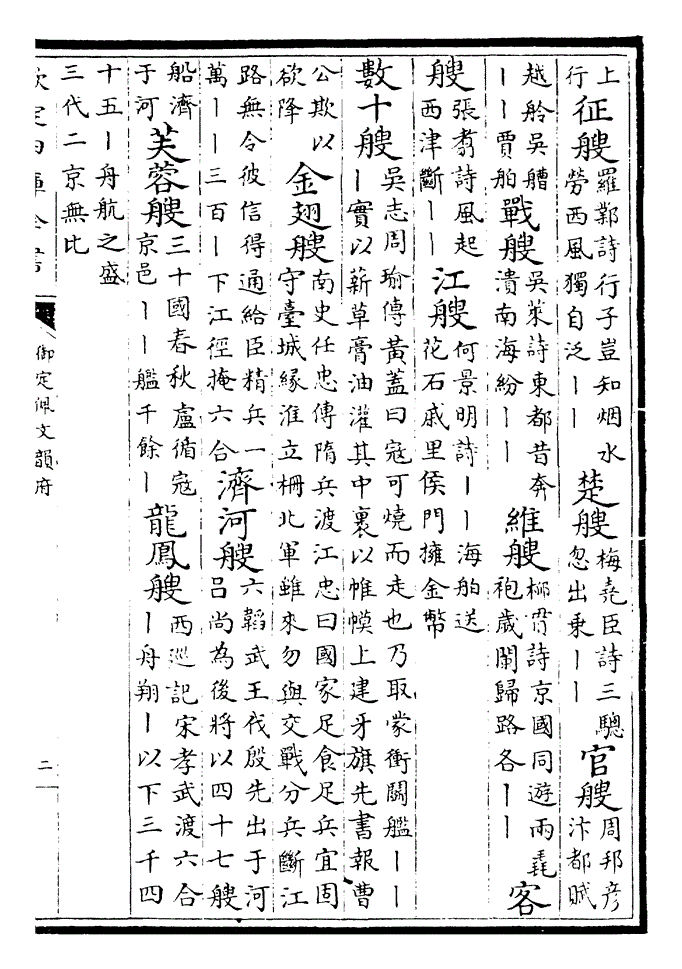 上
行
征艘
羅鄴詩行子豈知烟水
勞西風獨自泛｜｜
楚艘
梅堯臣詩三驄
忽出乗｜｜
官艘
周邦彦
汴都賦
越舲吳艚
｜｜賈舶
戰艘
吳萊詩東都昔奔
潰南海紛｜｜
維艘
栁貫詩京國同遊兩毳
袍歲闌歸路各｜｜
客
艘
張翥詩風起
西津斷｜｜
江艘
何景明詩｜｜海舶送
花石戚里侯門擁金幣
數十艘
吳志周瑜傳黃蓋曰冦可燒而走也乃取蒙衝鬬艦｜｜
｜實以薪草膏油灌其中裹以帷幙上建牙旗先書報曹
公欺以
欲降
金翅艘
南史任忠傳隋兵渡江忠曰國家足食足兵宜固
守臺城緣淮立柵北軍雖來勿與交戰分兵斷江
路無令彼信得通給臣精兵一
萬｜｜三百｜下江徑掩六合
濟河艘
六韜武王伐殷先出于河
吕尚為後將以四十七艘
船濟
于河
芙蓉艘
三十國春秋盧循冦
京邑｜｜艦千餘｜
龍鳳艘
西巡記宋孝武渡六合
｜舟翔｜以下三千四
十五｜舟航之盛
三代二京無比
欽定四庫全書
御定佩文韻府
二